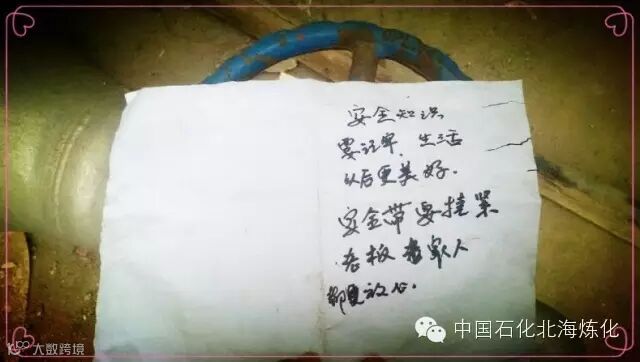 安全知识
要记牢、生活
以后更美好.
安全带要挂紧
老板老家人
都更放心.
中国石化北海炼化
大数跨境